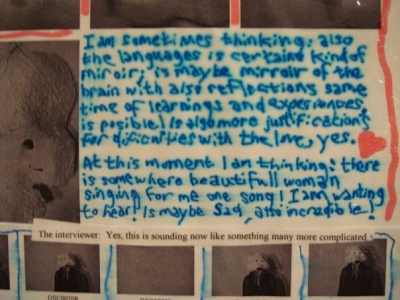 I am sometimes thinking: also
the languages is certaint kind of
mirroir; is maybe mirroir of the
brain with also reflections same
time of learnings and experiances
is posible! Is also more justifications
for dificulties with the love, yes.
At this moment I am thinking: there
is somewhere beautifull woman
singing for me one song! I am wanting
to hear! Is maybe sad, also incradible!
The interviewer: Yes; this is sounding now like something many more complicated.